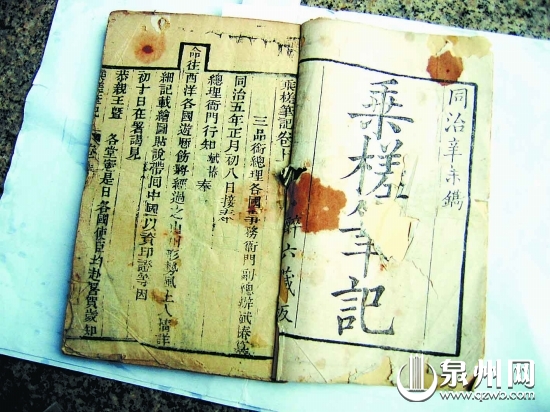 同治辛未鐫
乘槎筆記
六藏板
乘槎筆記卷上
三品銜總理各國事務衙門副總辦斌椿纂
同治五年正月初八日接奉
總理衙門行知斌椿奉
命往西洋各國遊歷飭將經過之山川形勢風土人情詳
細記載繪圖貼說帶回中國以資印證等因
初十日在署謁見
恭親王暨 各堂憲是日各國使臣均赴署賀歲
泉州网
www.qzwb.com